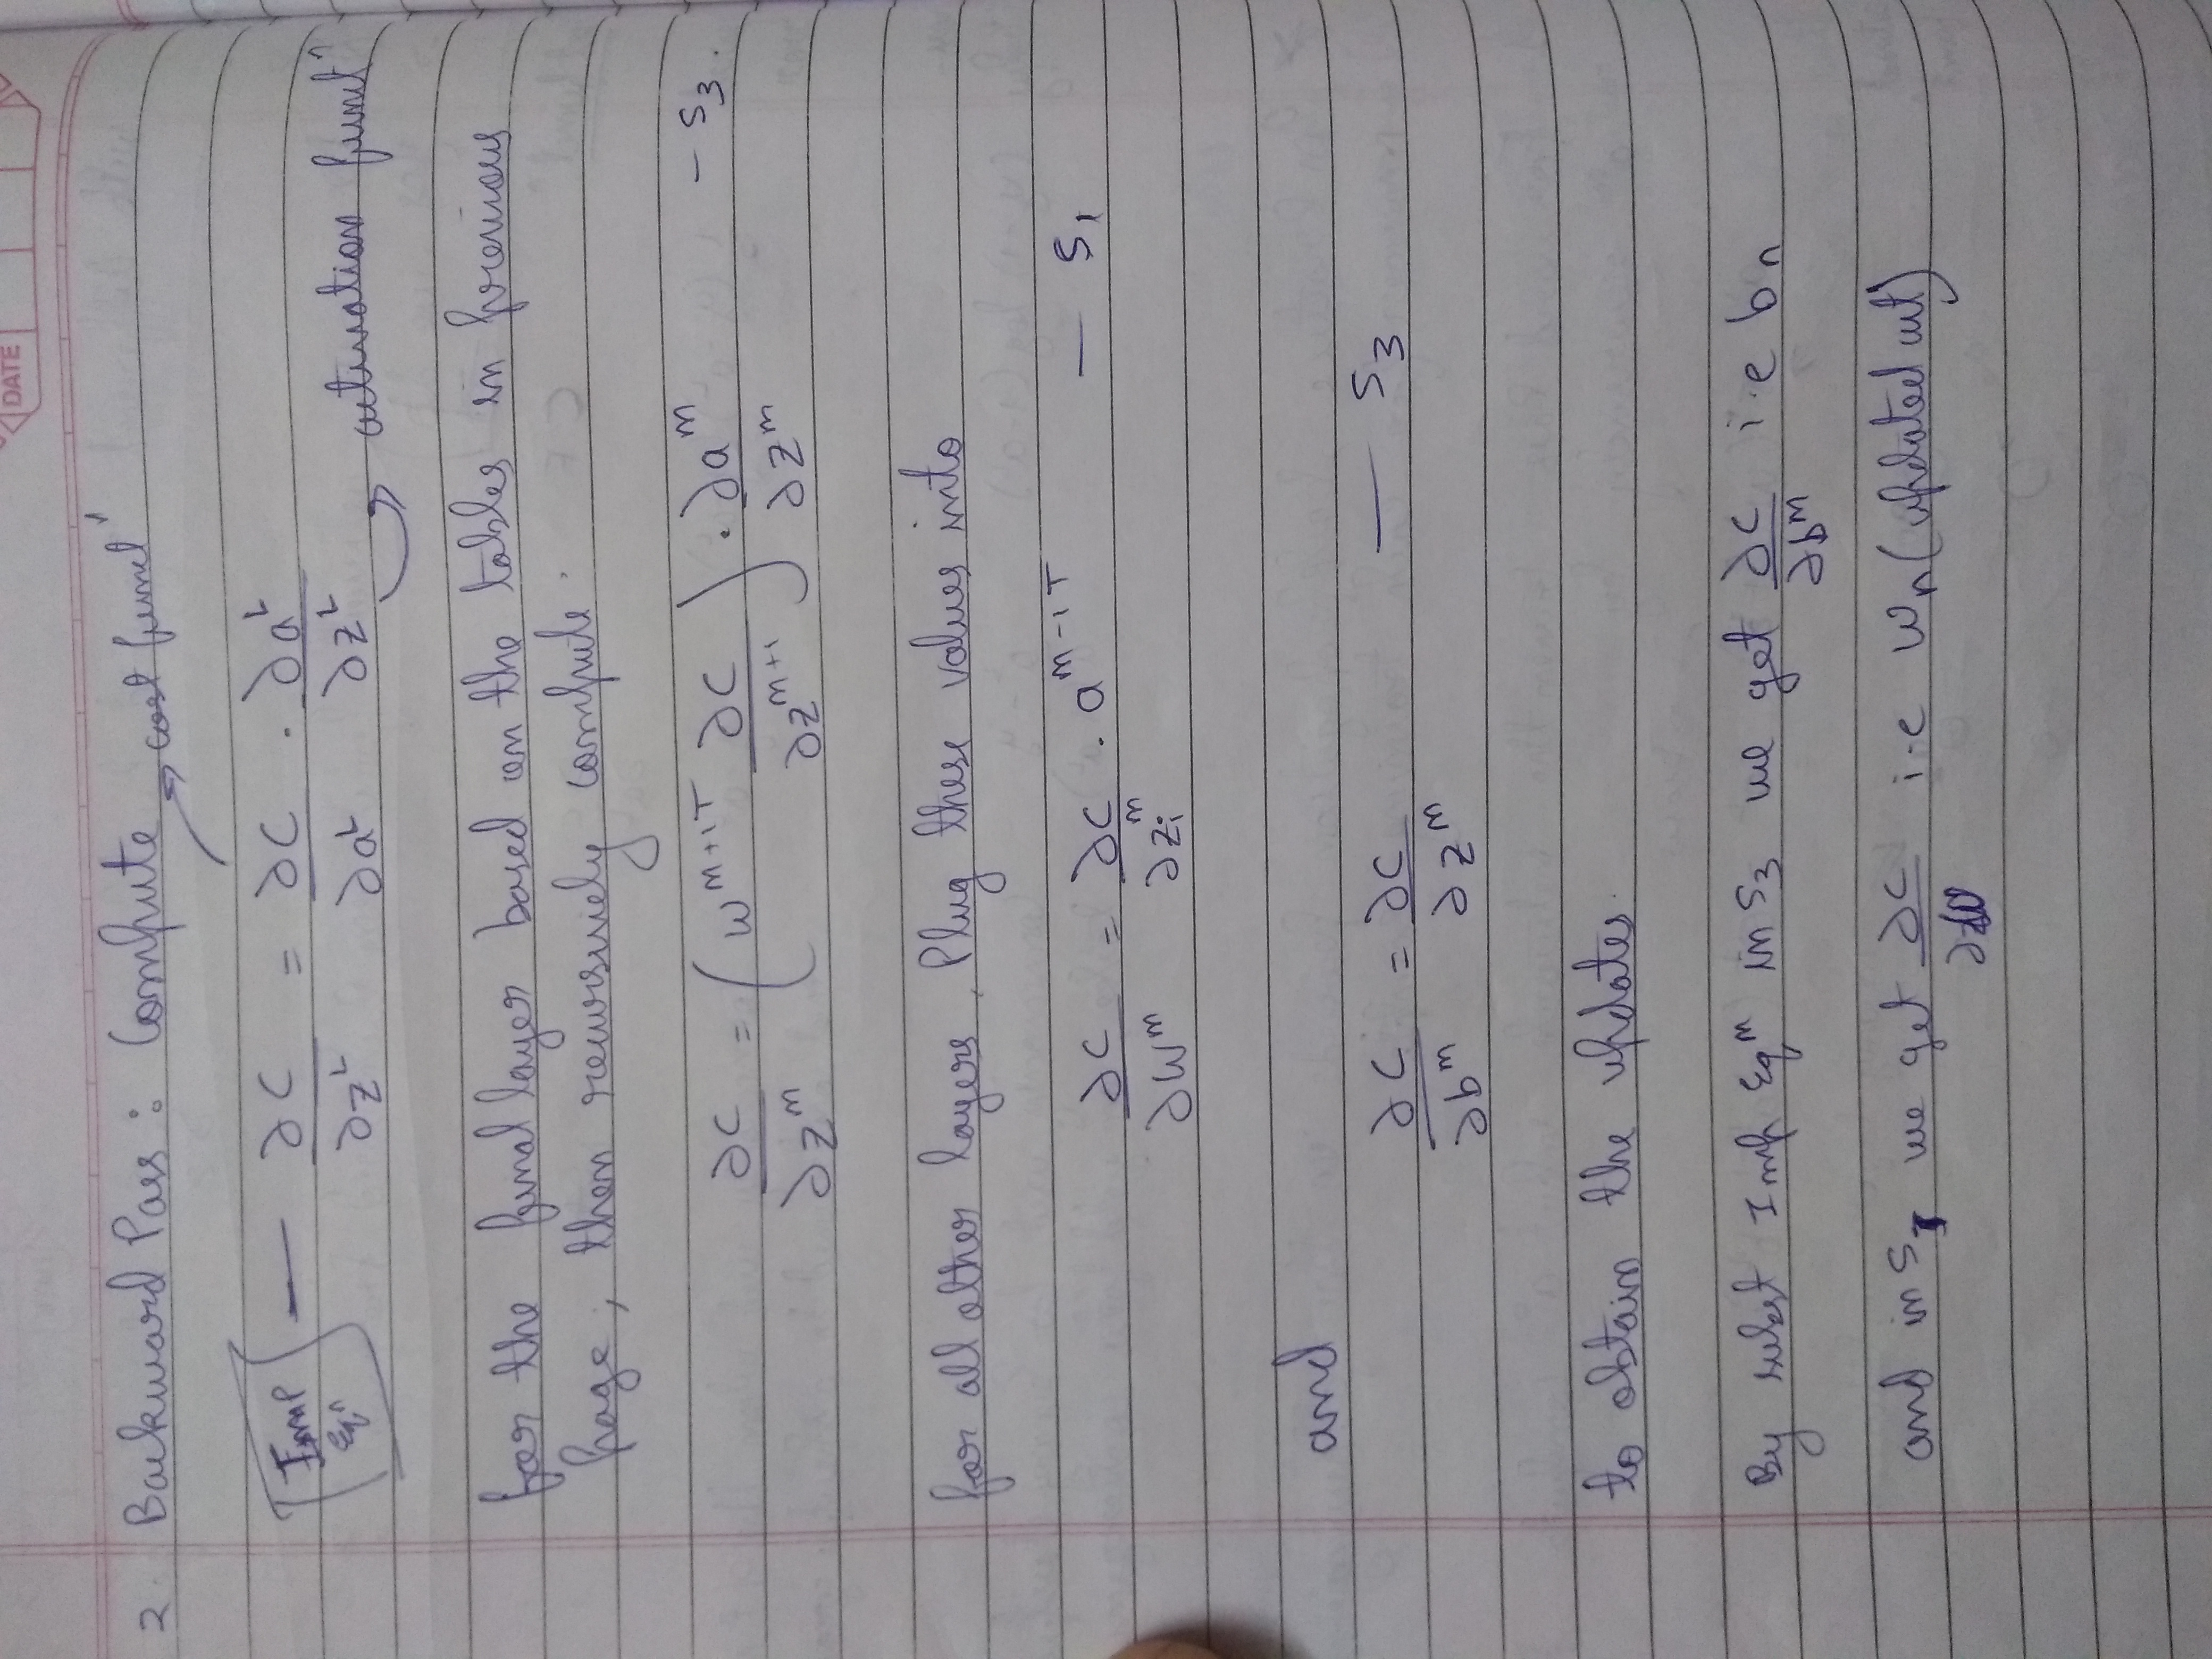 DATE
2. Backward Pass : Compute → cost functⁿ
Imp Eqⁿ — ∂C/∂z^L = ∂C/∂a^L · ∂a^L/∂z^L → activation functⁿ
for the final layer based on the tables in previous
page, then recursively compute.
∂C/∂z^m = (W^{m+1 T} ∂C/∂z^{m+1}) · ∂a^m/∂z^m - S₃.
for all other layers. Plug these values into
∂C/∂W^m = ∂C/∂z_i^m · a^{m-1 T} — S₁
and
∂C/∂b^m = ∂C/∂z^m — S₃
to obtain the updates.
By subst Imp Eqⁿ in S₃ we get ∂C/∂b^m i.e bₙ
and in S₁ we get ∂C/∂ i.e Wₙ (updated wt)